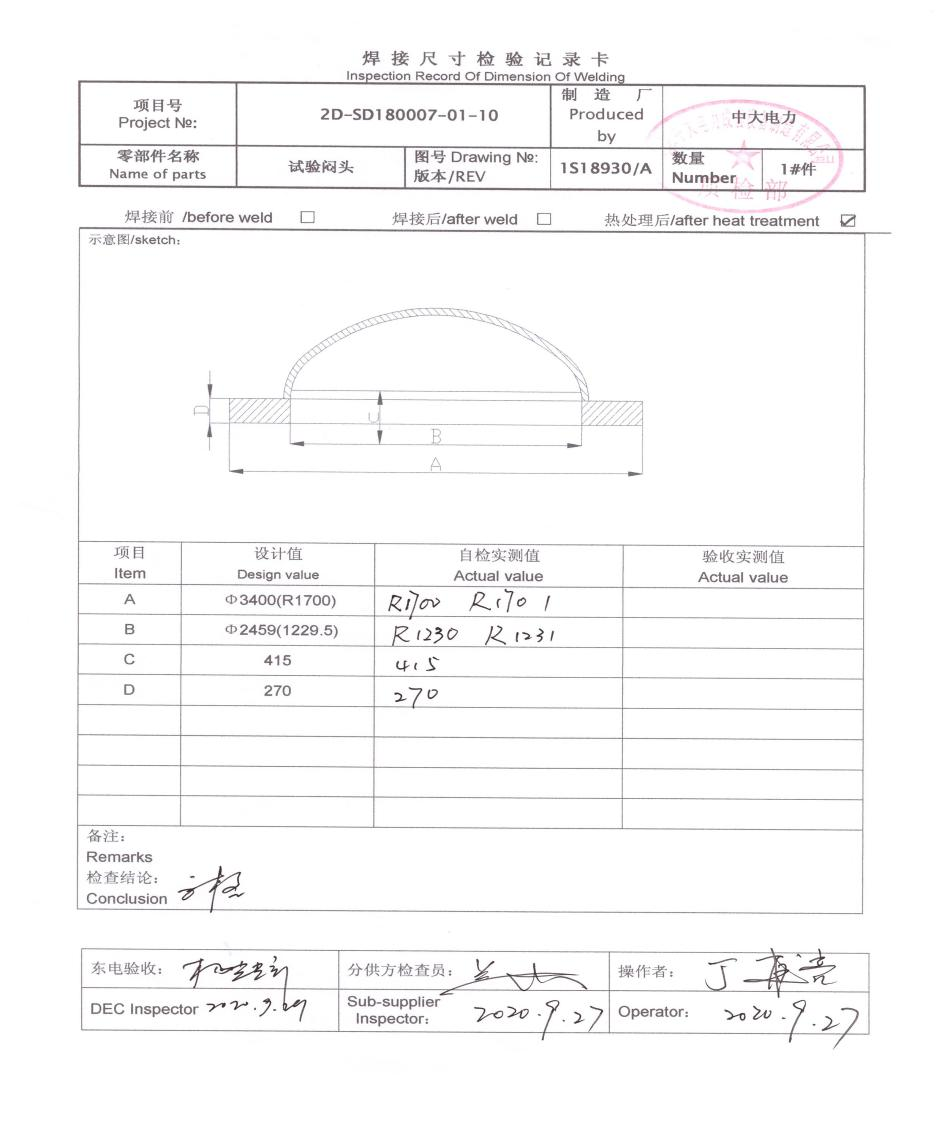 焊接尺寸检验记录卡
Inspection Record Of Dimension Of Welding
项目号
Project №:
2D-SD180007-01-10
制 造 厂
Produced
by
中大电力
零部件名称
Name of parts
试验闷头
图号 Drawing №:
版本/REV
1S18930/A
数量
Number
1#件
质检部
焊接前 /before weld □ 焊接后/after weld □ 热处理后/after heat treatment ☑
示意图/sketch:
D
C
B
A
项目
Item
设计值
Design value
自检实测值
Actual value
验收实测值
Actual value
A Φ3400(R1700) R1700 R1701
B Φ2459(1229.5) R1230 R1231
C 415 415
D 270 270
备注:
Remarks
检查结论:
Conclusion
东电验收:
分供方检查员:
操作者: 丁
DEC Inspector
Sub-supplier
Inspector: 2020.9.27
Operator: 2020.9.27